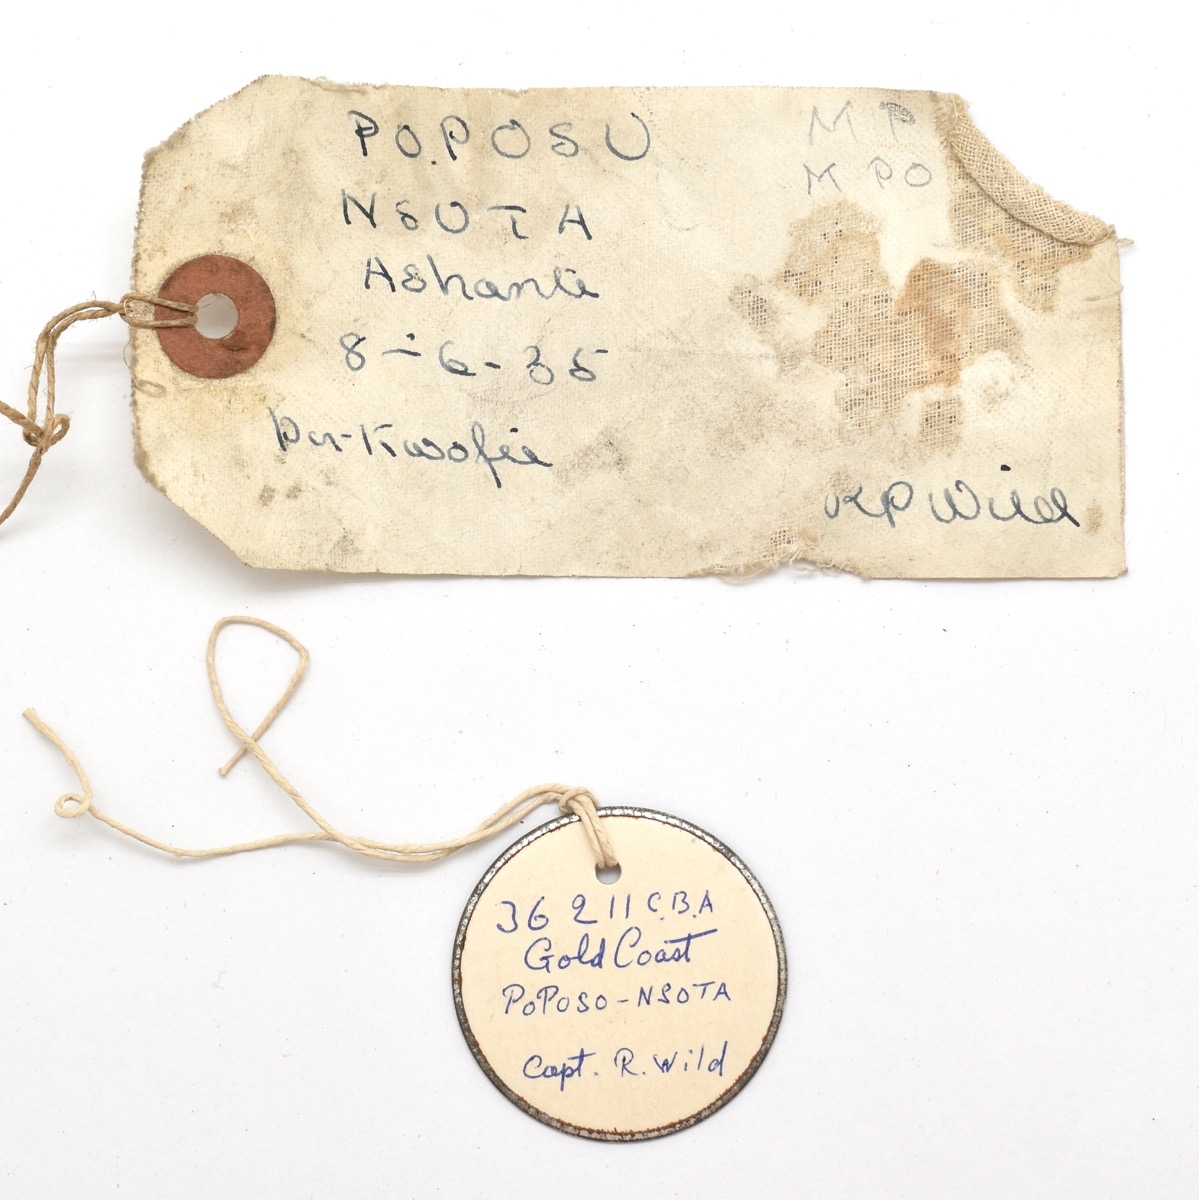 PO.POSU
NSUTA
Ashanti
8-6-35
Kwofie
M P
M PO
RP Wild
36 2 11 C.B.A
Gold Coast
POPOSO-NSOTA
Capt. R. Wild